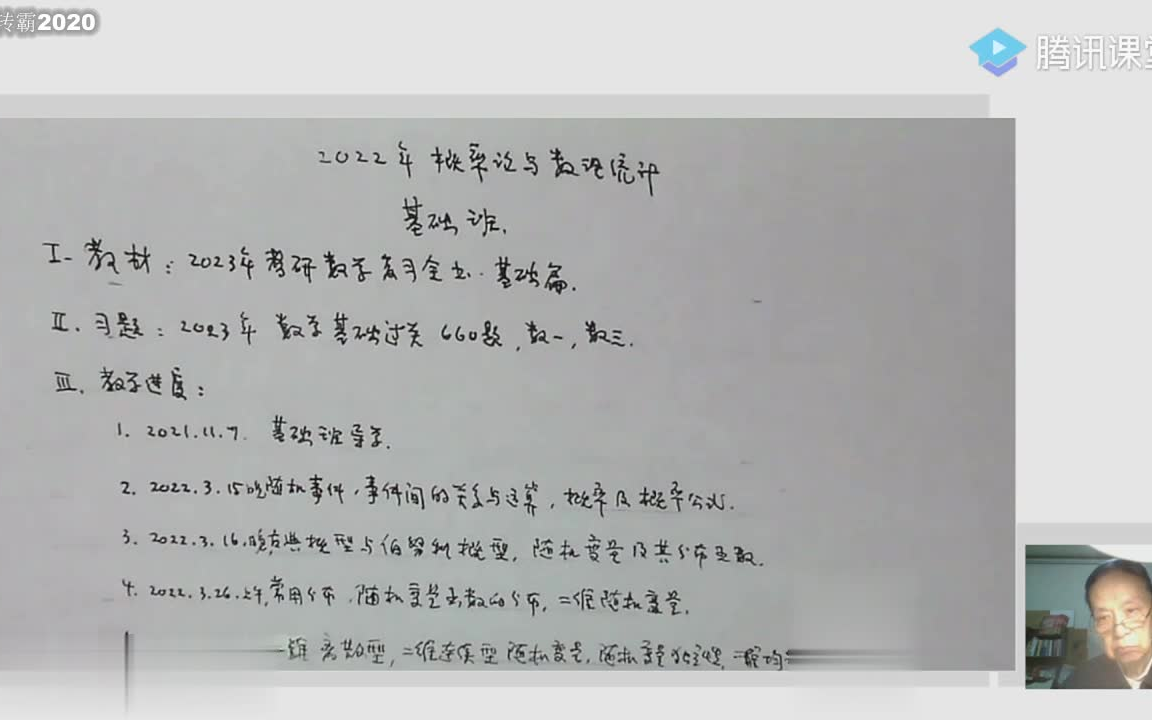 转霸2020
腾讯课堂
2022年 概率论与数理统计
基础班.
I. 教材：2023年考研数学复习全书·基础篇.
II. 习题：2023年 数学基础过关 660题, 数一, 数三.
III. 教学进度：
1. 2021.11.7. 基础班导学.
2. 2022.3.15晚随机事件, 事件间的关系与运算, 概率及概率公式.
3. 2022.3.16.晚古典概型与伯努利概型, 随机变量及其分布函数.
4. 2022.3.26.上午,常用分布, 随机变量函数的分布, 二维随机变量.
维离散型, 二维连续型随机变量, 随机变量独立性,